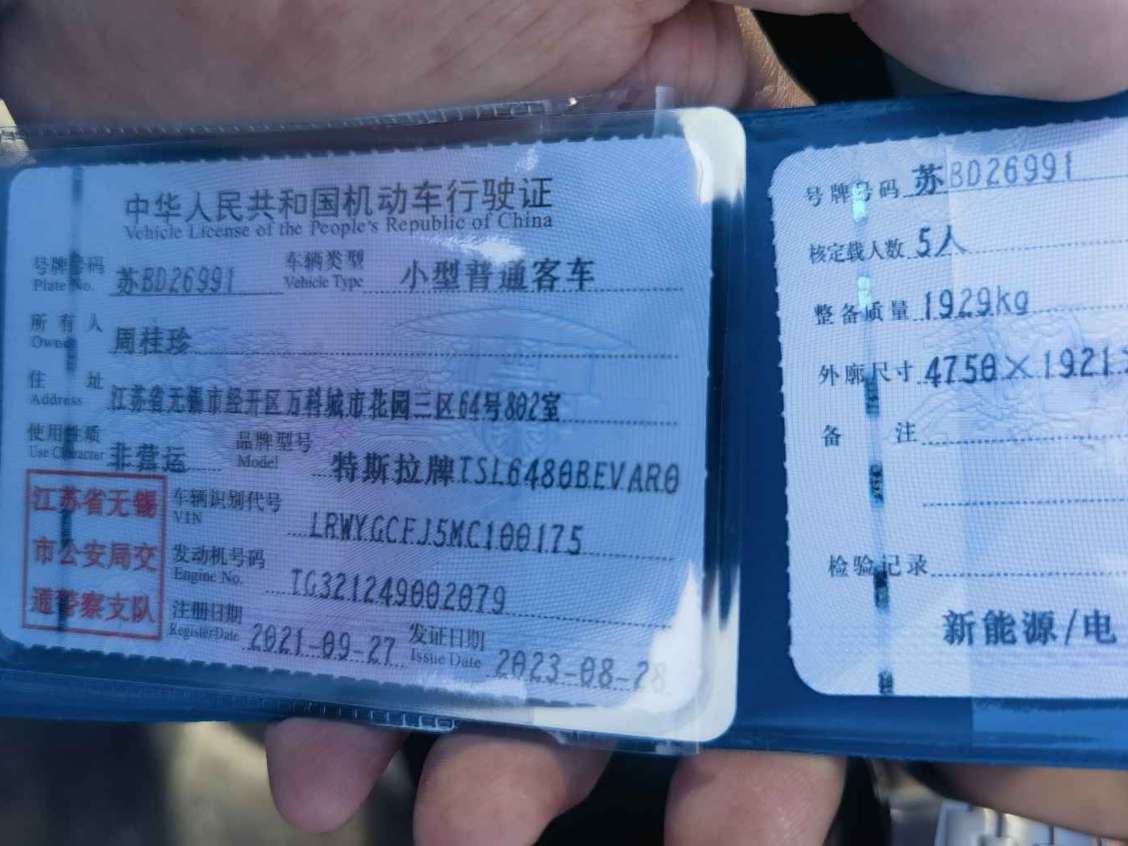 中华人民共和国机动车行驶证
Vehicle License of the People's Republic of China
号牌号码 苏BD26991 车辆类型 小型普通客车
Plate No. Vehicle Type
所有人 周桂珍
Owner
住址 江苏省无锡市经开区万科城市花园三区64号802室
Address
使用性质 非营运 品牌型号 特斯拉牌TSL6480BEVAR0
Use Character Model
江苏省无锡
市公安局交
通警察支队
车辆识别代号 LRWYGCFJ5MC100175
VIN
发动机号码 TG321249002079
Engine No.
注册日期 2021-09-27 发证日期 2023-08-28
Register Date Issue Date
号牌号码 苏BD26991
核定载人数 5人
整备质量 1929kg
外廓尺寸 4750×1921
备注
检验记录
新能源/电